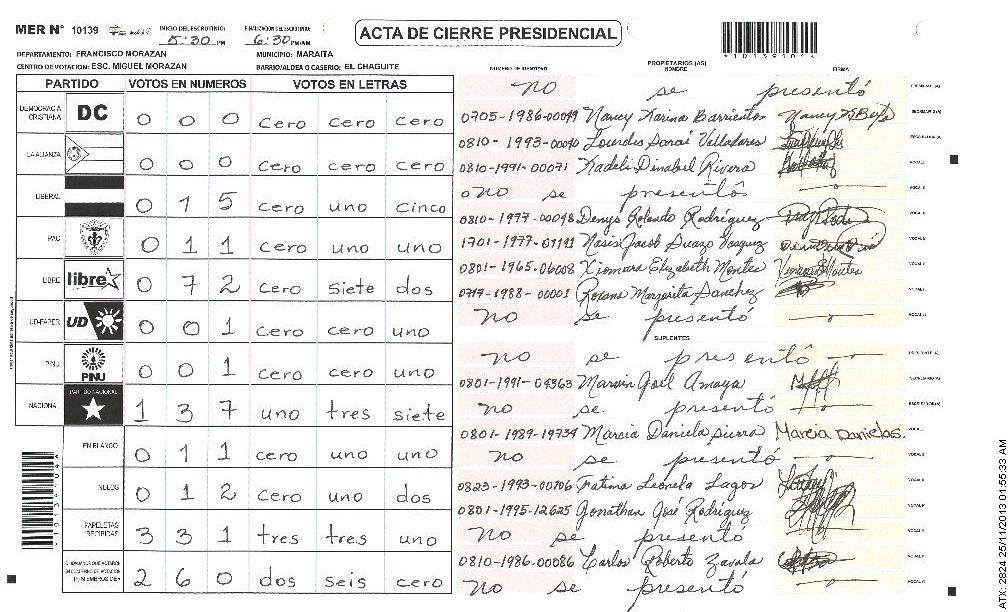 MER N° 10139 INICIO DEL ESCRUTINIO: 5:30 PM FINALIZACION DEL ESCRUTINIO: 6:30 PM/AM
ACTA DE CIERRE PRESIDENCIAL
DEPARTAMENTO: FRANCISCO MORAZAN MUNICIPIO: MARAITA
CENTRO DE VOTACION: ESC. MIGUEL MORAZAN BARRIO/ALDEA O CASERIO: EL CHAGUITE
PARTIDO VOTOS EN NUMEROS VOTOS EN LETRAS
DEMOCRACIA CRISTIANA DC 0 0 0 cero cero cero
LA ALIANZA 0 0 0 cero cero cero
LIBERAL 0 1 5 cero uno cinco
PAC 0 1 1 cero uno uno
LIBRE libre 0 7 2 cero siete dos
UD-FAPER UD 0 0 1 cero cero uno
PINU PINU 0 0 1 cero cero uno
NACIONAL PARTIDO NACIONAL 1 3 7 uno tres siete
EN BLANCO 0 1 1 cero uno uno
NULOS 0 1 2 cero uno dos
PAPELETAS RECIBIDAS 3 3 1 tres tres uno
2 6 0 dos seis cero
PROPIETARIOS (AS)
NUMERO DE IDENTIDAD NOMBRE FIRMA
no se presentó
0705-1986-00049 Nancy Karina Barrientos
0810-1993-00090 Lourdes Saraí Valladares
0810-1991-00071 Kadeli Dinabel Rivera
no se presentó
0810-1977-00098 Denys Rolando Rodríguez
1701-1977-01191 Nasis Jacob Suazo Vasquez
0801-1965-06008 Xiomara Elizabeth Montes
0717-1988-00001 Roxana Margarita Sanchez
no se presentó
SUPLENTES
no se presentó
0801-1991-04363 Marvin Joel Amaya
no se presentó
0801-1989-19734 Marcia Daniela Sierra Marcia Danielas.
no se presentó
0823-1993-00706 Fatima Leonela Lagos
0801-1995-12625 Jonathan José Rodríguez
no se presentó
0810-1986-00086 Carlos Roberto Zavala
no se presentó
ATX-2824 25/11/2013 01:55:33 AM